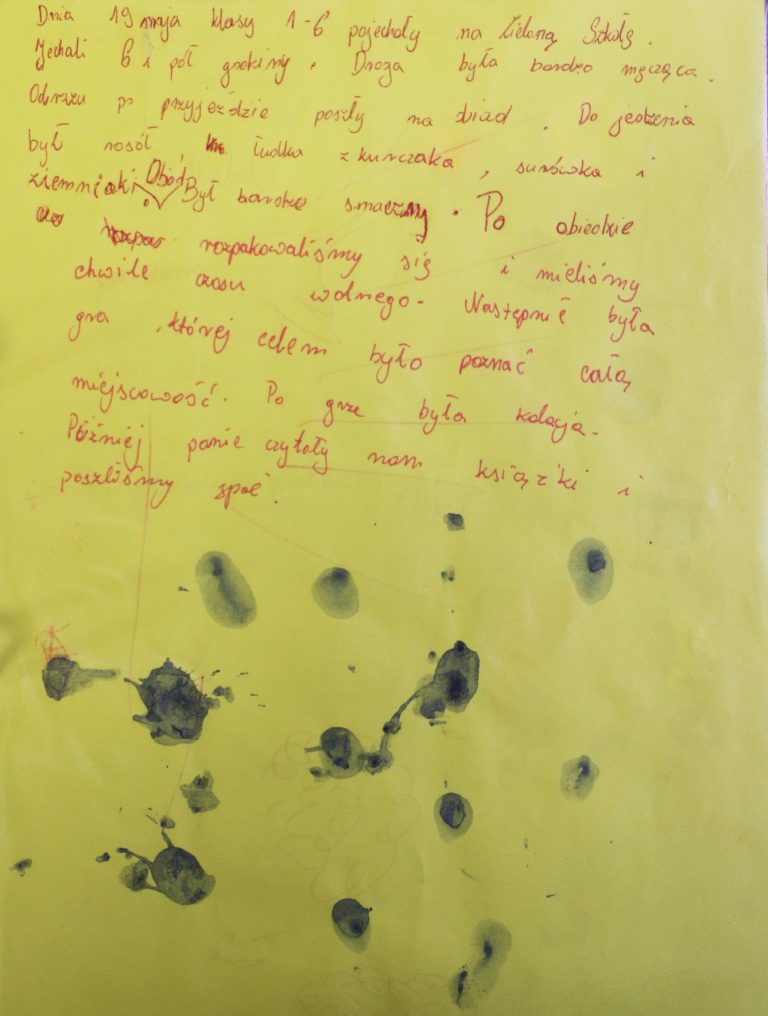 Dnia 19 maja klasy 1-6 pojechały na Zieloną Szkołę.
Jechali 6 i pół godziny. Droga była bardzo męcząca.
Odrazu po przyjeździe poszły na obiad. Do jedzenia
był rosół udka z kurczaka, surówka i
ziemniaki. Obiad Był bardzo smaczny. Po obiedzie
rozpakowaliśmy się i mieliśmy
chwile czasu wolnego. Następnie była
gra, której celem było poznać całą
miejscowość. Po grze była kolacja.
Później panie czytały nam książki i
poszliśmy spać.